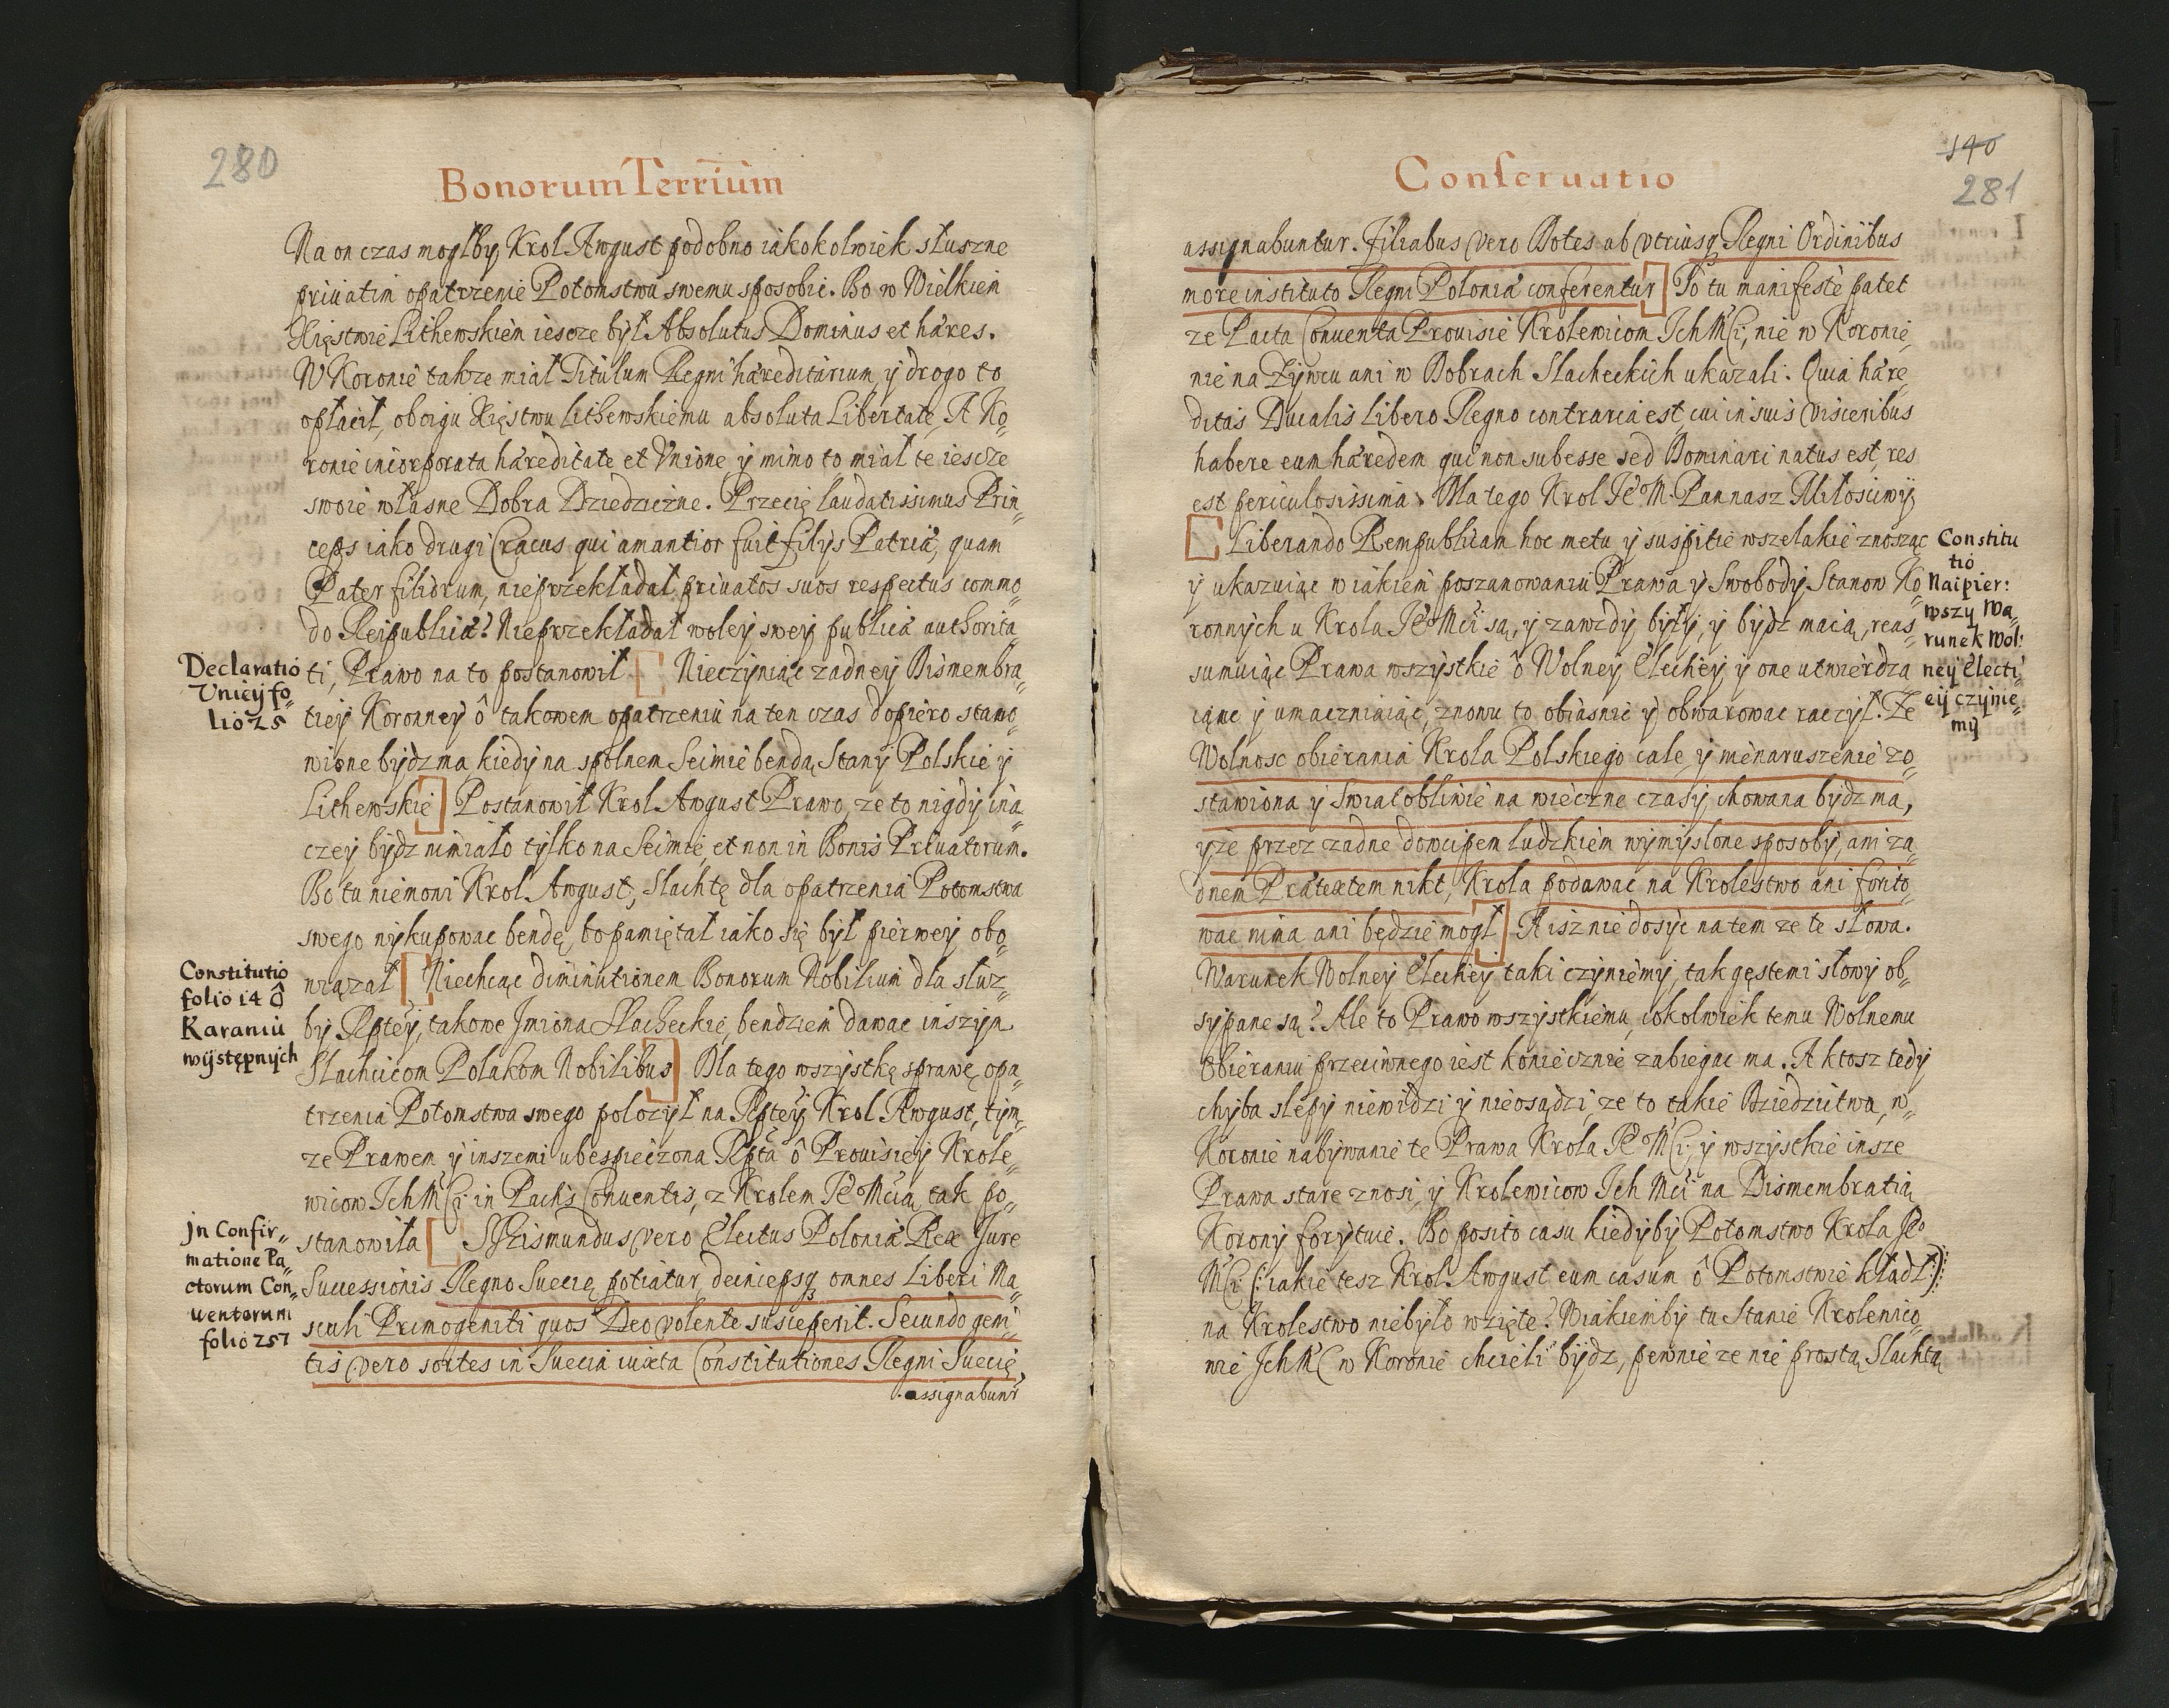 280
Bonorum Terrium
Na on czas mogłby Krol August podobno iakokolwiek słuszne
priuatim opatrzenie Potomstwu swemu sposobić. Bo w Wielkiem
Xięstwie Lithewskiem iescze był Absolutus Dominus et hæres.
W Koronie takze miał Titulum Regni hæreditarium, y drogo to
opłacił, oboigu Xięstwu Lithewskiemu absoluta Libertate, A Ko„
ronie incorporata hæreditate et Vnione, y mimo to miał te iescze
swoie własne Dobra Dziedziczne. Przecię laudatissimus Prin„
ceps iako drugi Cracus qui amantior fuit filijs Patriæ, quam
Pater filiorum, nieprzekładał priuatos suos respectus commo„
do Reipublicæ? Nieprzekładał woley swey publicæ authorita„
ti, Prawo na to postanowił [ Nieczyniąc zadney Dismembra„
tiey Koronney ô takowem opatrzeniu na ten czas dopiero stano„
wione bydz ma kiedy na spolnem Seimie bendą Stany Polskie y
Lithewskie ] Postanowił Krol August Prawo, ze to nigdy ina„
czey bydz nimiało tylko na Seimie, et non in Bonis Priuatorum.
Bo tu niemoni Krol August, Slachtę dla opatrzenia Potomstwa
swego wykupowac bendę, bo pamiętał iako się był pierwey obo„
wiązał [ Niechcąc diminutionem Bonorum Nobilium dla służ„
by Rptey, takowe Jmiona Slacheckie, bendziem dawac inszym
Slachcicom Polakom Nobilibus ] Dla tego wszystkę sprawę opa„
trzenia Potomstwa swego polozył na Rptey Krol August, tym„
ze Prawem y inszemi ubespieczona Rpta ô Prouisiey Krole„
wicow Ich MCi: in Pactis Conuentis, z Krolem Je° Mcią tak po„
stanowiła [ SSigismundus vero Electus Poloniæ Rex Jure
Successionis Regno Sueciæ potiatur, deincepsq omnes Liberi Ma„
sculi Primogeniti quos Deo volente susceperit. Secundo geni„
tis vero sortes in Suecia iuxta Constitutiones Regni Sueciæ,
assignabunr
Declaratio
Vniey fo„
lio 25
Constitutio
folio 14 Ô
Karaniu
występnych
Jn Confir„
matione Pa„
ctorum Con„
uentorum
folio 257
140
281
Conseruatio
assignabuntur. Filiabus vero Dotes ab vtriusq Regni Ordinibus
more instituto Regni Poloniæ conferentur ] To tu manifeste patet
ze Pacta Conuenta Prouisie Krolewicom Ich MCi; nie w Koronie,
nie na Zywcu ani w Dobrach Slacheckich ukazali. Quia hære„
ditas Ducalis Libero Regno contraria est, cui in suis visceribus
habere eum hæredem qui non subesse sed Dominari natus est, res
est periculosissima. Dla tego Krol Je° M. Pan nasz Miłosciwy,
[ Liberando Rempublicam hoc metu y suspitie wszelakie znosząc
y ukazuiąc w iakiem poszanowaniu Prawa y Swobody Stanow Ko„
ronnych u Krola Je° Mci są, y zawzdy były, y bydz maią, reas„
sumuiąc Prawa wszystkie ô Wolney Electiey y one utwierdza„
iąc y umacniaiąc, znowu to obiasnic y obwarowac raczył. Ze
Wolnosc obierania Krola Polskiego cale y nienaruszenie zo„
stawiona y swiatobliwie na wieczne czasy chowana bydz ma,
y ze przez zadne dowcipem ludzkiem wymyslone sposoby, ani za„
dnem Prætextem nikt, Krola podawac na Krolestwo ani forito„
wac nima ani będzie mogł ] A isz nie dosyc na tem ze te słowa.
Warunek Wolney Electiey taki czyniemy, tak gęstemi słowy ob„
sypane są? Ale to Prawo wszystkiemu, cokolwiek temu Wolnemu
Obieraniu przeciwnego iest koniecznie zabiegac ma. A ktosz tedy
chyba slepy niewidzi y nieosądzi, ze to takie Dziedzictwa, w„
Koronie nabywanie te Prawa Krola Je° MCi; y wszystkie insze
Prawa stare znosi, y Krolewicow Ich Mci na Dismembratią
Korony forytuie. Bo posito casu kiedyby Potomstwo Krola Je°
MCi: (: iakie tesz Krol August eum casum ô Potomstwie kładł :)
na Krolestwo niebyło wzięte? Wiakiemby tu Stanie Krolewico„
wie Ich MC w Koronie chcieli bydz, pewnie ze nie prostą Slachtą
Constitu
tio
Naipier:
wszy Wa„
runek Wol:
ney Electi„
eij czynie„
my